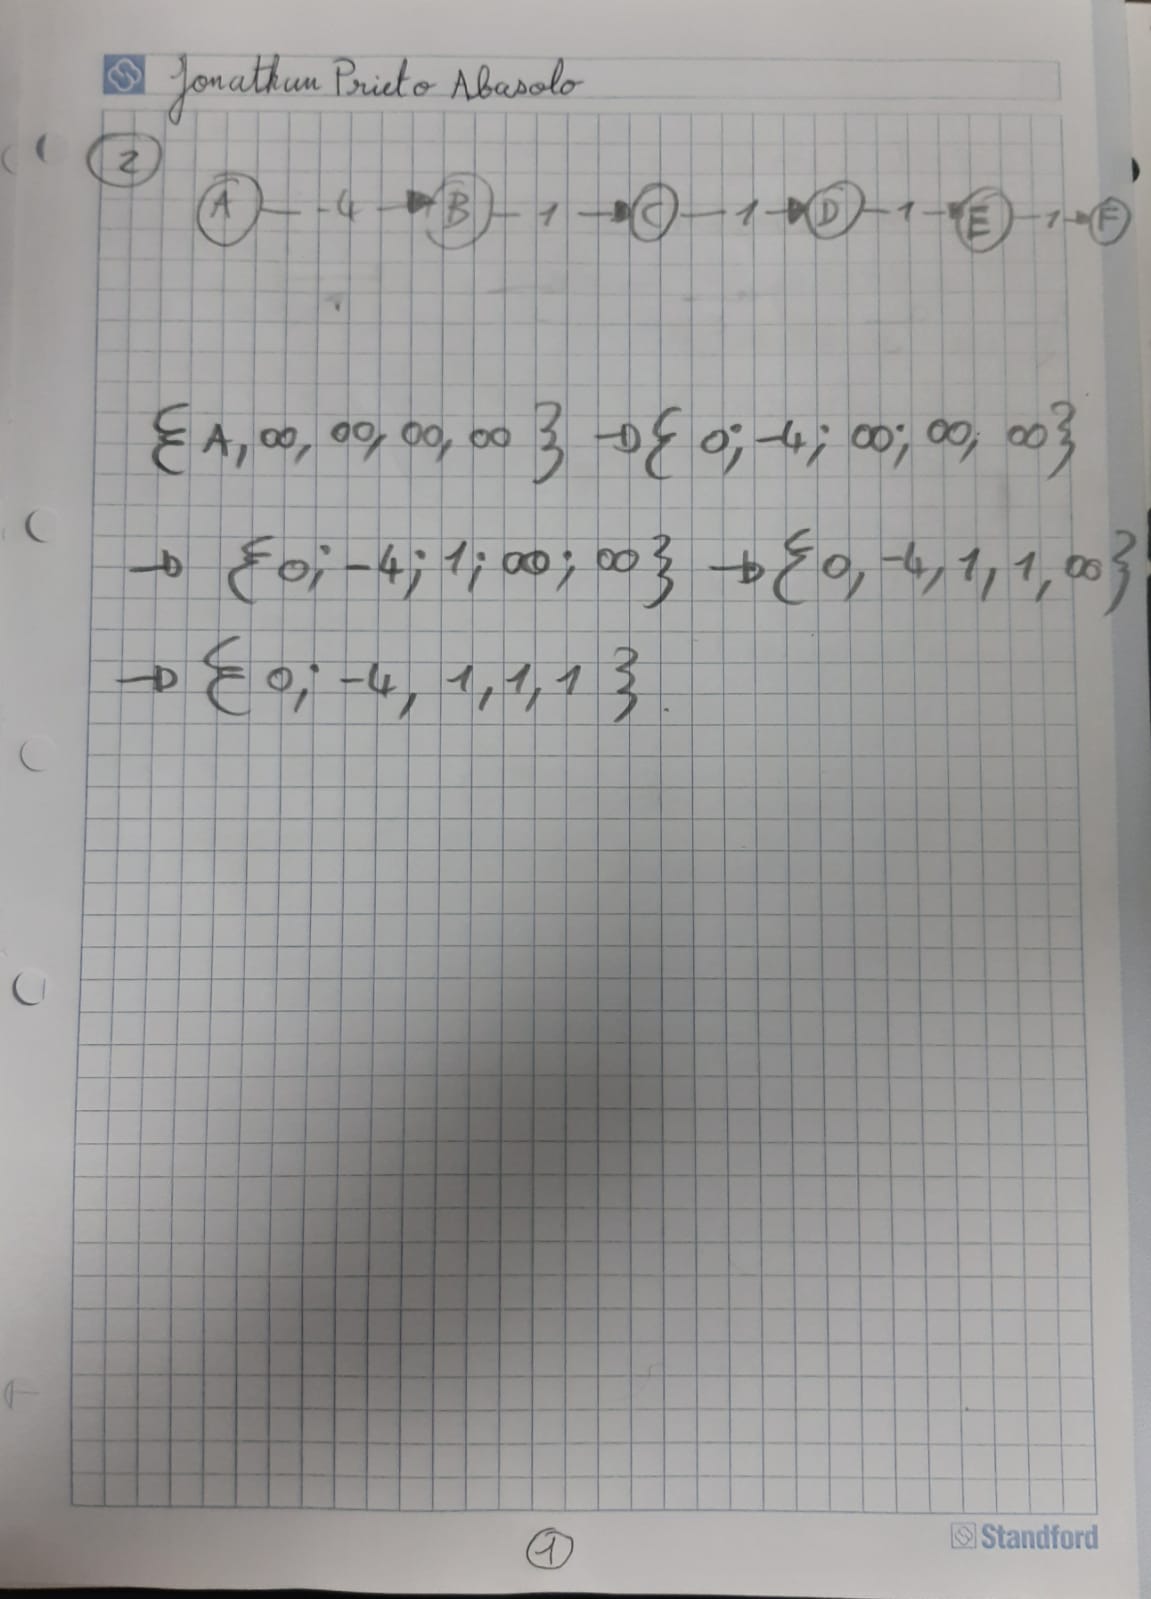 Jonathan Prieto Abasolo
2
A -4 B 1 C 1 D 1 E 1 F
{A, ∞, ∞, ∞, ∞} → {0; -4; ∞; ∞, ∞}
→ {0; -4; 1; ∞; ∞} → {0, -4, 1, 1, ∞}
→ {0; -4, 1, 1, 1}.
1
Standford